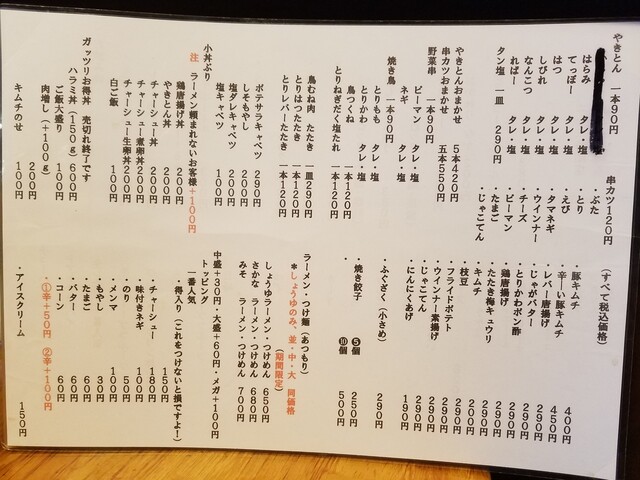 やきとん　一本90円
はらみ　タレ・塩
てっぽー　タレ・塩
はつ　タレ・塩
しびれ　タレ・塩
なんこつ　タレ・塩
ればー　タレ・塩
タン塩　一皿　290円
やきとんおまかせ　5本420円
串カツおまかせ　五本550円
野菜串　一本90円
ピーマン　タレ・塩
ネギ　タレ・塩
焼き鳥　一本90円
とりもも　タレ・塩
とりかわ　タレ・塩
鳥つくね　一本120円
とりねぎだく塩たれ　一本120円
鳥むね肉　たたき　一皿280円
とりはつたたき　一本120円
とりレバーたたき　一本120円
ポテサラキャベツ　290円
しそもやし　200円
塩ダレキャベツ　200円
塩キャベツ　100円
小丼ぶり
注　ラーメン頼まれないお客様+100円
鶏唐揚げ丼　200円
やきとん丼　200円
チャーシュー丼　200円
チャーシュー煮卵丼　200円
チャーシュー生卵丼　200円
白ご飯　100円
ガッツリお得丼　売切れ終了です
ハラミ丼（150g）600円
ご飯大盛り　100円
肉増し（+100g）　200円
キムチのせ　100円
串カツ120円　（すべて税込価格）
・ぶた
・とり
・えび
・タマネギ
・ウインナー
・チーズ
・ピーマン
・たまご
・じゃこてん
・豚キムチ　400円
・辛ーい豚キムチ　450円
・レバー唐揚げ　290円
・じゃがバター　290円
・とりかわポン酢　290円
・鶏唐揚げ　290円
・たたき梅キュウリ　290円
・キムチ　200円
・枝豆
・フライドポテト　290円
・ウインナー素揚げ　290円
・じゃこてん　290円
・にんにくあげ　190円
・ふぐざく（小さめ）　290円
・焼き餃子　❺個　250円
❿個　500円
ラーメン・つけ麺（あつもり）
*しょうゆのみ、並・中・大　同価格
（期間限定）
しょうゆラーメン・つけめん　650円
さかな　ラーメン・つけめん　680円
みそ　ラーメン・つけめん　700円
中盛+30円・大盛+60円・メガ+100円
トッピング
一番人気
・得入り（これをつけないと損ですよ！）　150円
・チャーシュー　180円
・味付きネギ　100円
・のり　50円
・メンマ　100円
・もやし　30円
・たまご　60円
・バター　60円
・コーン　60円
・①辛+50円　②辛+100円
・アイスクリーム　150円